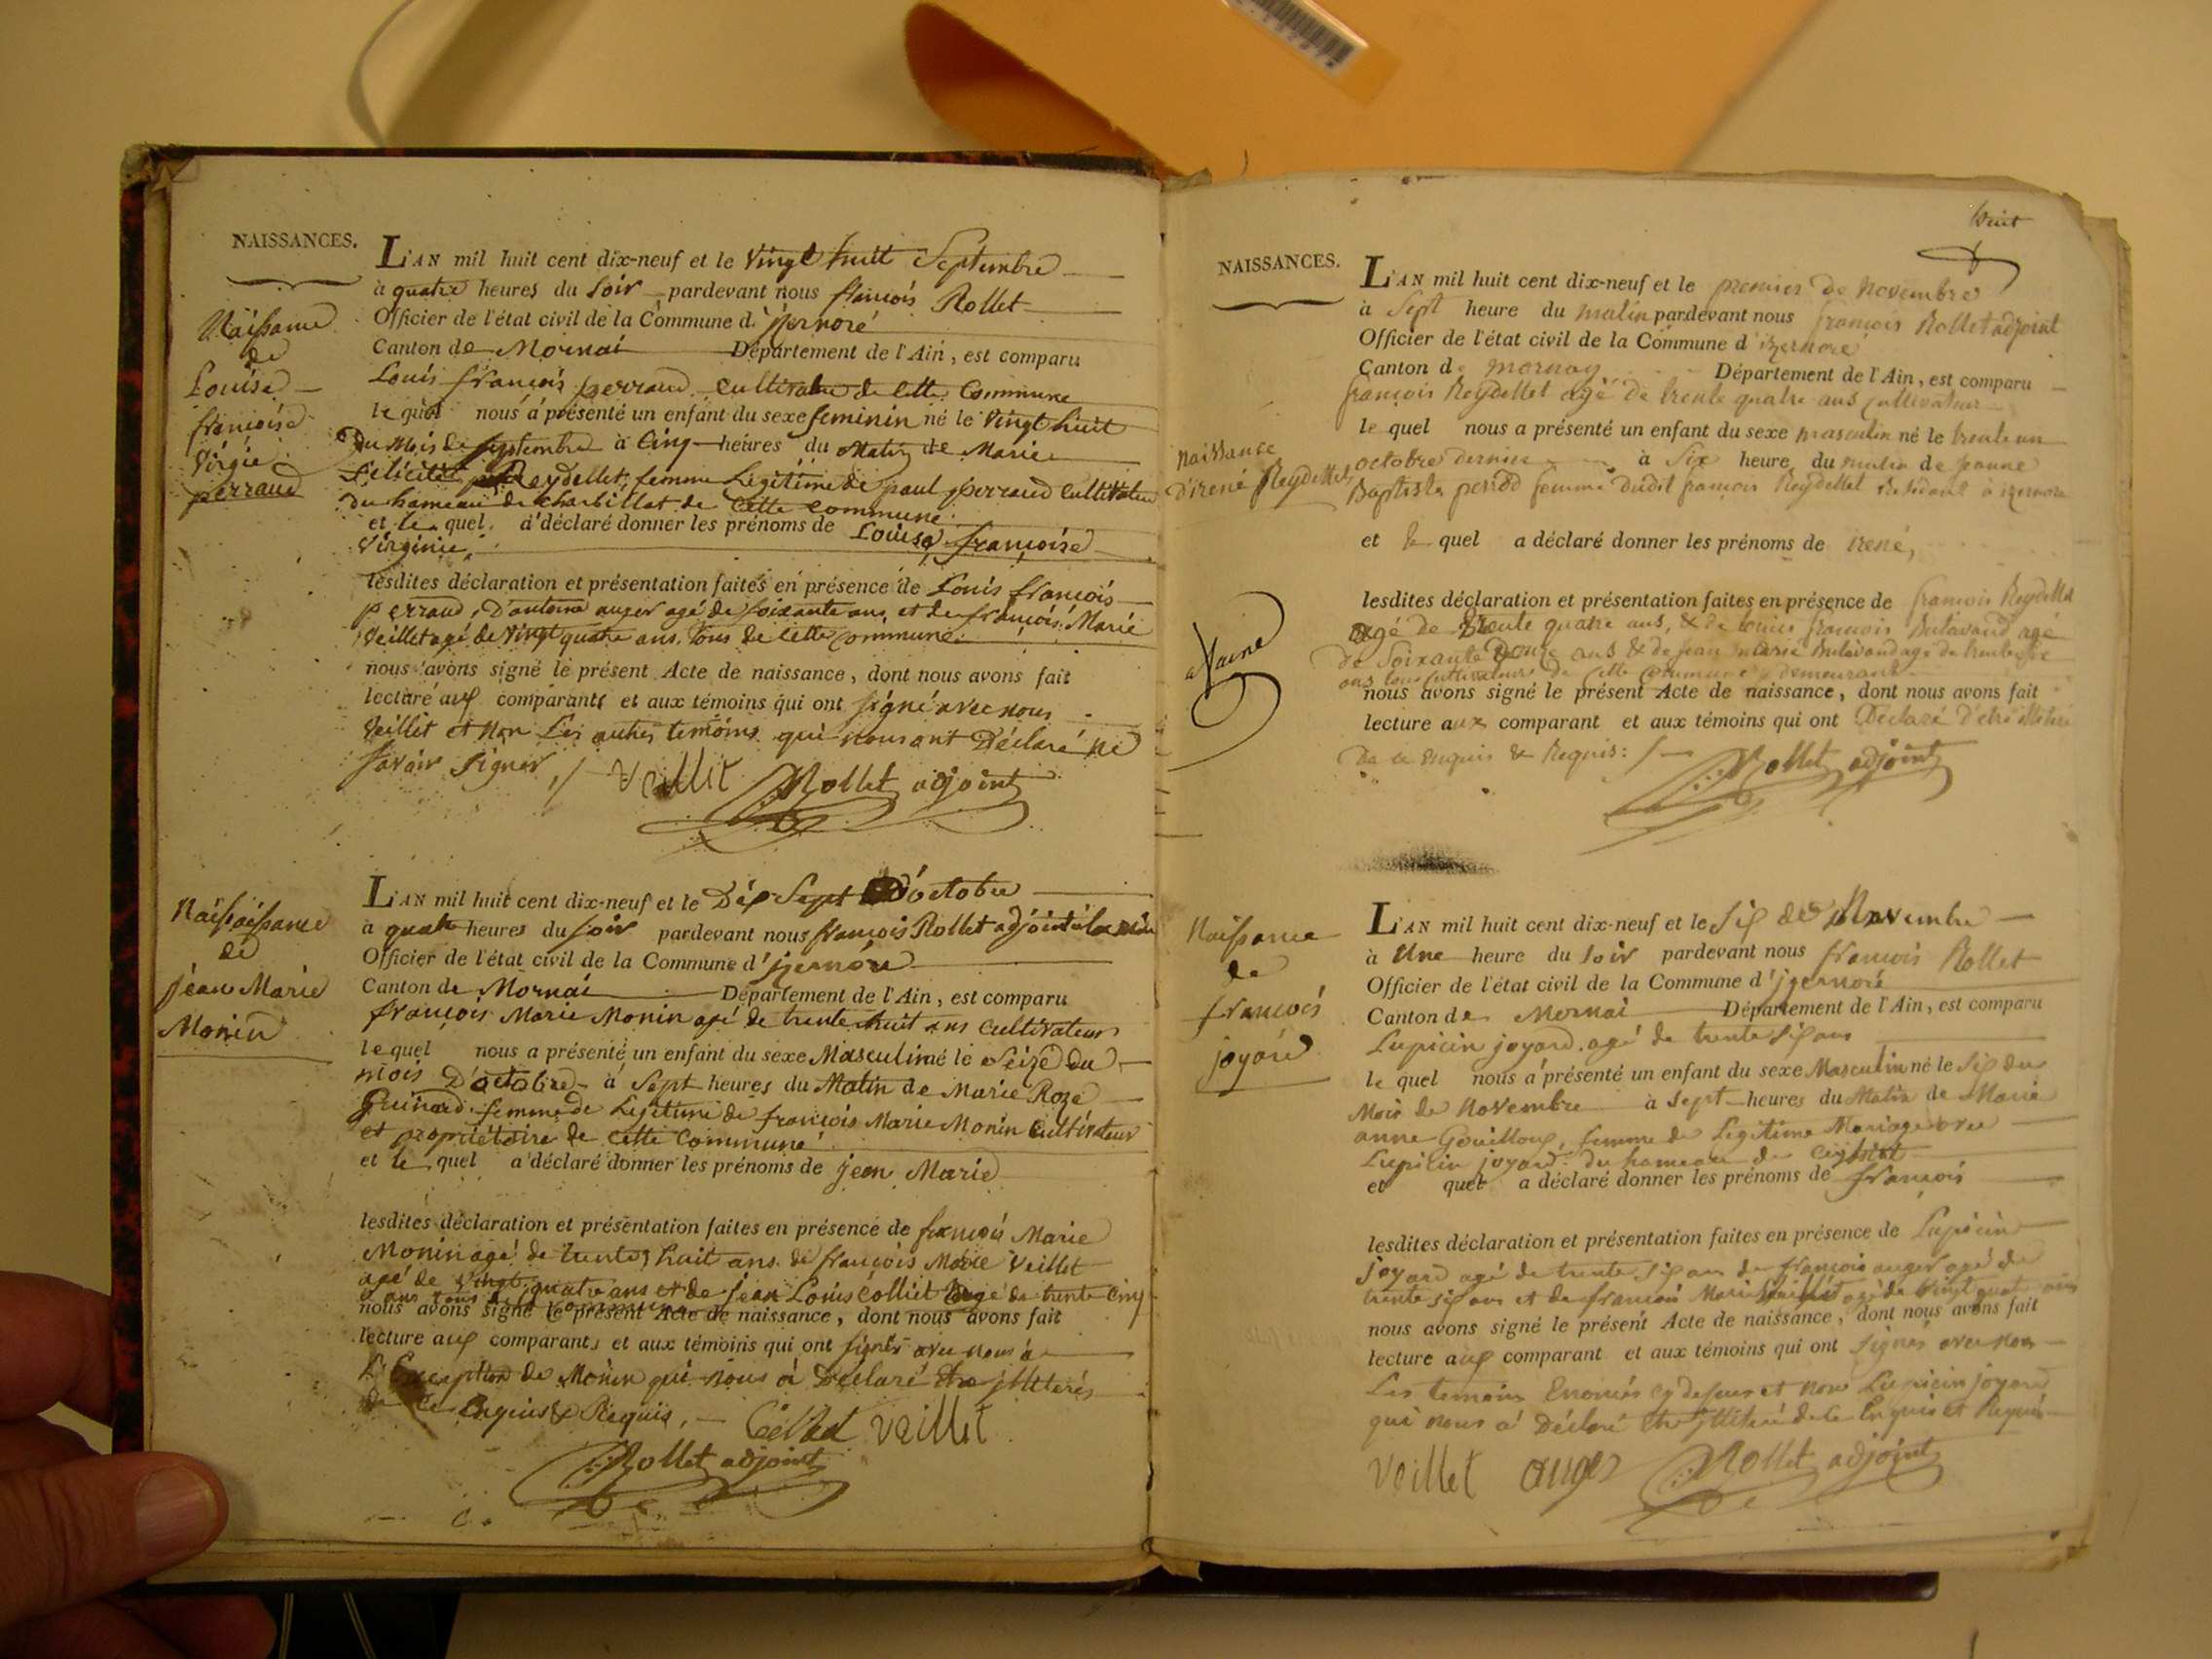 NAISSANCES.
Naissance
de
Louise
françoise
Virgie
perraud
L'AN mil huit cent dix-neuf et le Vingt huit Septembre
à quatre heures du Soir pardevant nous françois Rollet
Officier de l'état civil de la Commune d'jzernore
Canton de Mornai Département de l'Ain, est comparu
Louis françois perraud Cultivateur de Cette Commune
le quel nous a présenté un enfant du sexe feminin né le Vingt huit
Du Mois de Septembre à Cinq heures du Matin de Marie
Felicité Reydellet, femme Legitime de paul perraud Cultivateur
du hameau de Charbillat de Cette Commune
et le quel a déclaré donner les prénoms de Louise françoise
Virginie
lesdites déclaration et présentation faites en présence de Louis françois
perraud, D'antoine auger agé de soixante ans et de françois Marie
Veillet agé de Vingt quatre ans. tous de Cette Commune.
nous avons signé le présent Acte de naissance, dont nous avons fait
lecture aux comparants et aux témoins qui ont Signé avec nous
Veillet et Non Les autres temoins qui nous ont Déclaré ne
Savoir Signer ./. Veillet Rollet adjoint
Naissaissance
de
jean Marie
Monin
L'AN mil huit cent dix-neuf et le Dix Sept D'octobre
à quatre heures du soir pardevant nous françois Rollet adjoint
Officier de l'état civil de la Commune d'jzernore
Canton de Mornai Département de l'Ain, est comparu
françois Marie Monin agé de trente huit ans Cultivateur
le quel nous a présenté un enfant du sexe Masculin né le Seize du
mois D'octobre à Sept heures du Matin de Marie Roze
Guinard femme de Legitime de françois Marie Monin Cultivateur
et propriétaire de Cette Commune
et le quel a déclaré donner les prénoms de jean Marie
lesdites déclaration et présentation faites en présence de françois Marie
Monin agé de trente huit ans. de françois Marie Veillet
agé de vingt quatre ans et de jean Louis Colliet agé de trente Cinq
ans tous de Commune
nous avons signé le présent Acte de naissance, dont nous avons fait
lecture aux comparants et aux témoins qui ont signés avec nous a
L'Exception de Monin qui nous a Déclaré Etre jlleterés
de ce Enquis & Requis, Veillet
Rollet adjoint
huit
NAISSANCES.
Naissance
d'irené Reydellet
L'AN mil huit cent dix-neuf et le premier de novembre
à Sept heure du matin pardevant nous françois Rollet adjoint
Officier de l'état civil de la Commune d'izernore
Canton de mornay Département de l'Ain, est comparu
françois Reydellet agé de trente quatre ans Cultivateur
le quel nous a présenté un enfant du sexe masculin né le trente un
octobre dernier à Six heure du matin de jeanne
Baptiste perrod femme dudit françois Reydellet Residant à izernore
et le quel a déclaré donner les prénoms de irené,
lesdites déclaration et présentation faites en présence de françois Reydellet
agé de trente quatre ans, & de Louis françois Butavand agé
de Soixante Douze ans & de jean marie Butavand agé de
ans tous Cultivateurs de Cette Commune y demeurant
nous avons signé le présent Acte de naissance, dont nous avons fait
lecture aux comparant et aux témoins qui ont Declaré d'etre
De ce Enquis & Requis: /. Rollet adjoint
Naissance
de
françois
joyard
L'AN mil huit cent dix-neuf et le Six de Novembre
à Une heure du soir pardevant nous françois Rollet
Officier de l'état civil de la Commune d'jzernore
Canton de Mornai Département de l'Ain, est comparu
Lupicin joyard agé de trente Six ans
le quel nous a présenté un enfant du sexe Masculin né le Six du
Mois de Novembre à Sept heures du Matin de Marie
anne Gouilloux, femme de Legitime Mariage avec
Lupicin joyard du hameau de
et quel a déclaré donner les prénoms de françois
lesdites déclaration et présentation faites en présence de Lupicin
joyard agé de trente Six ans de françois auger agé de
trente six ans et de françois Marie Veillet agé de Vingt quatre ans
nous avons signé le présent Acte de naissance, dont nous avons fait
lecture aux comparant et aux témoins qui ont Signés avec nous
Les temoins Enomés cy dessus et non Lupicin joyard
qui nous a Déclaré Etre jlliteré de Ce Enquis et Requis
Veillet auger Rollet adjoint